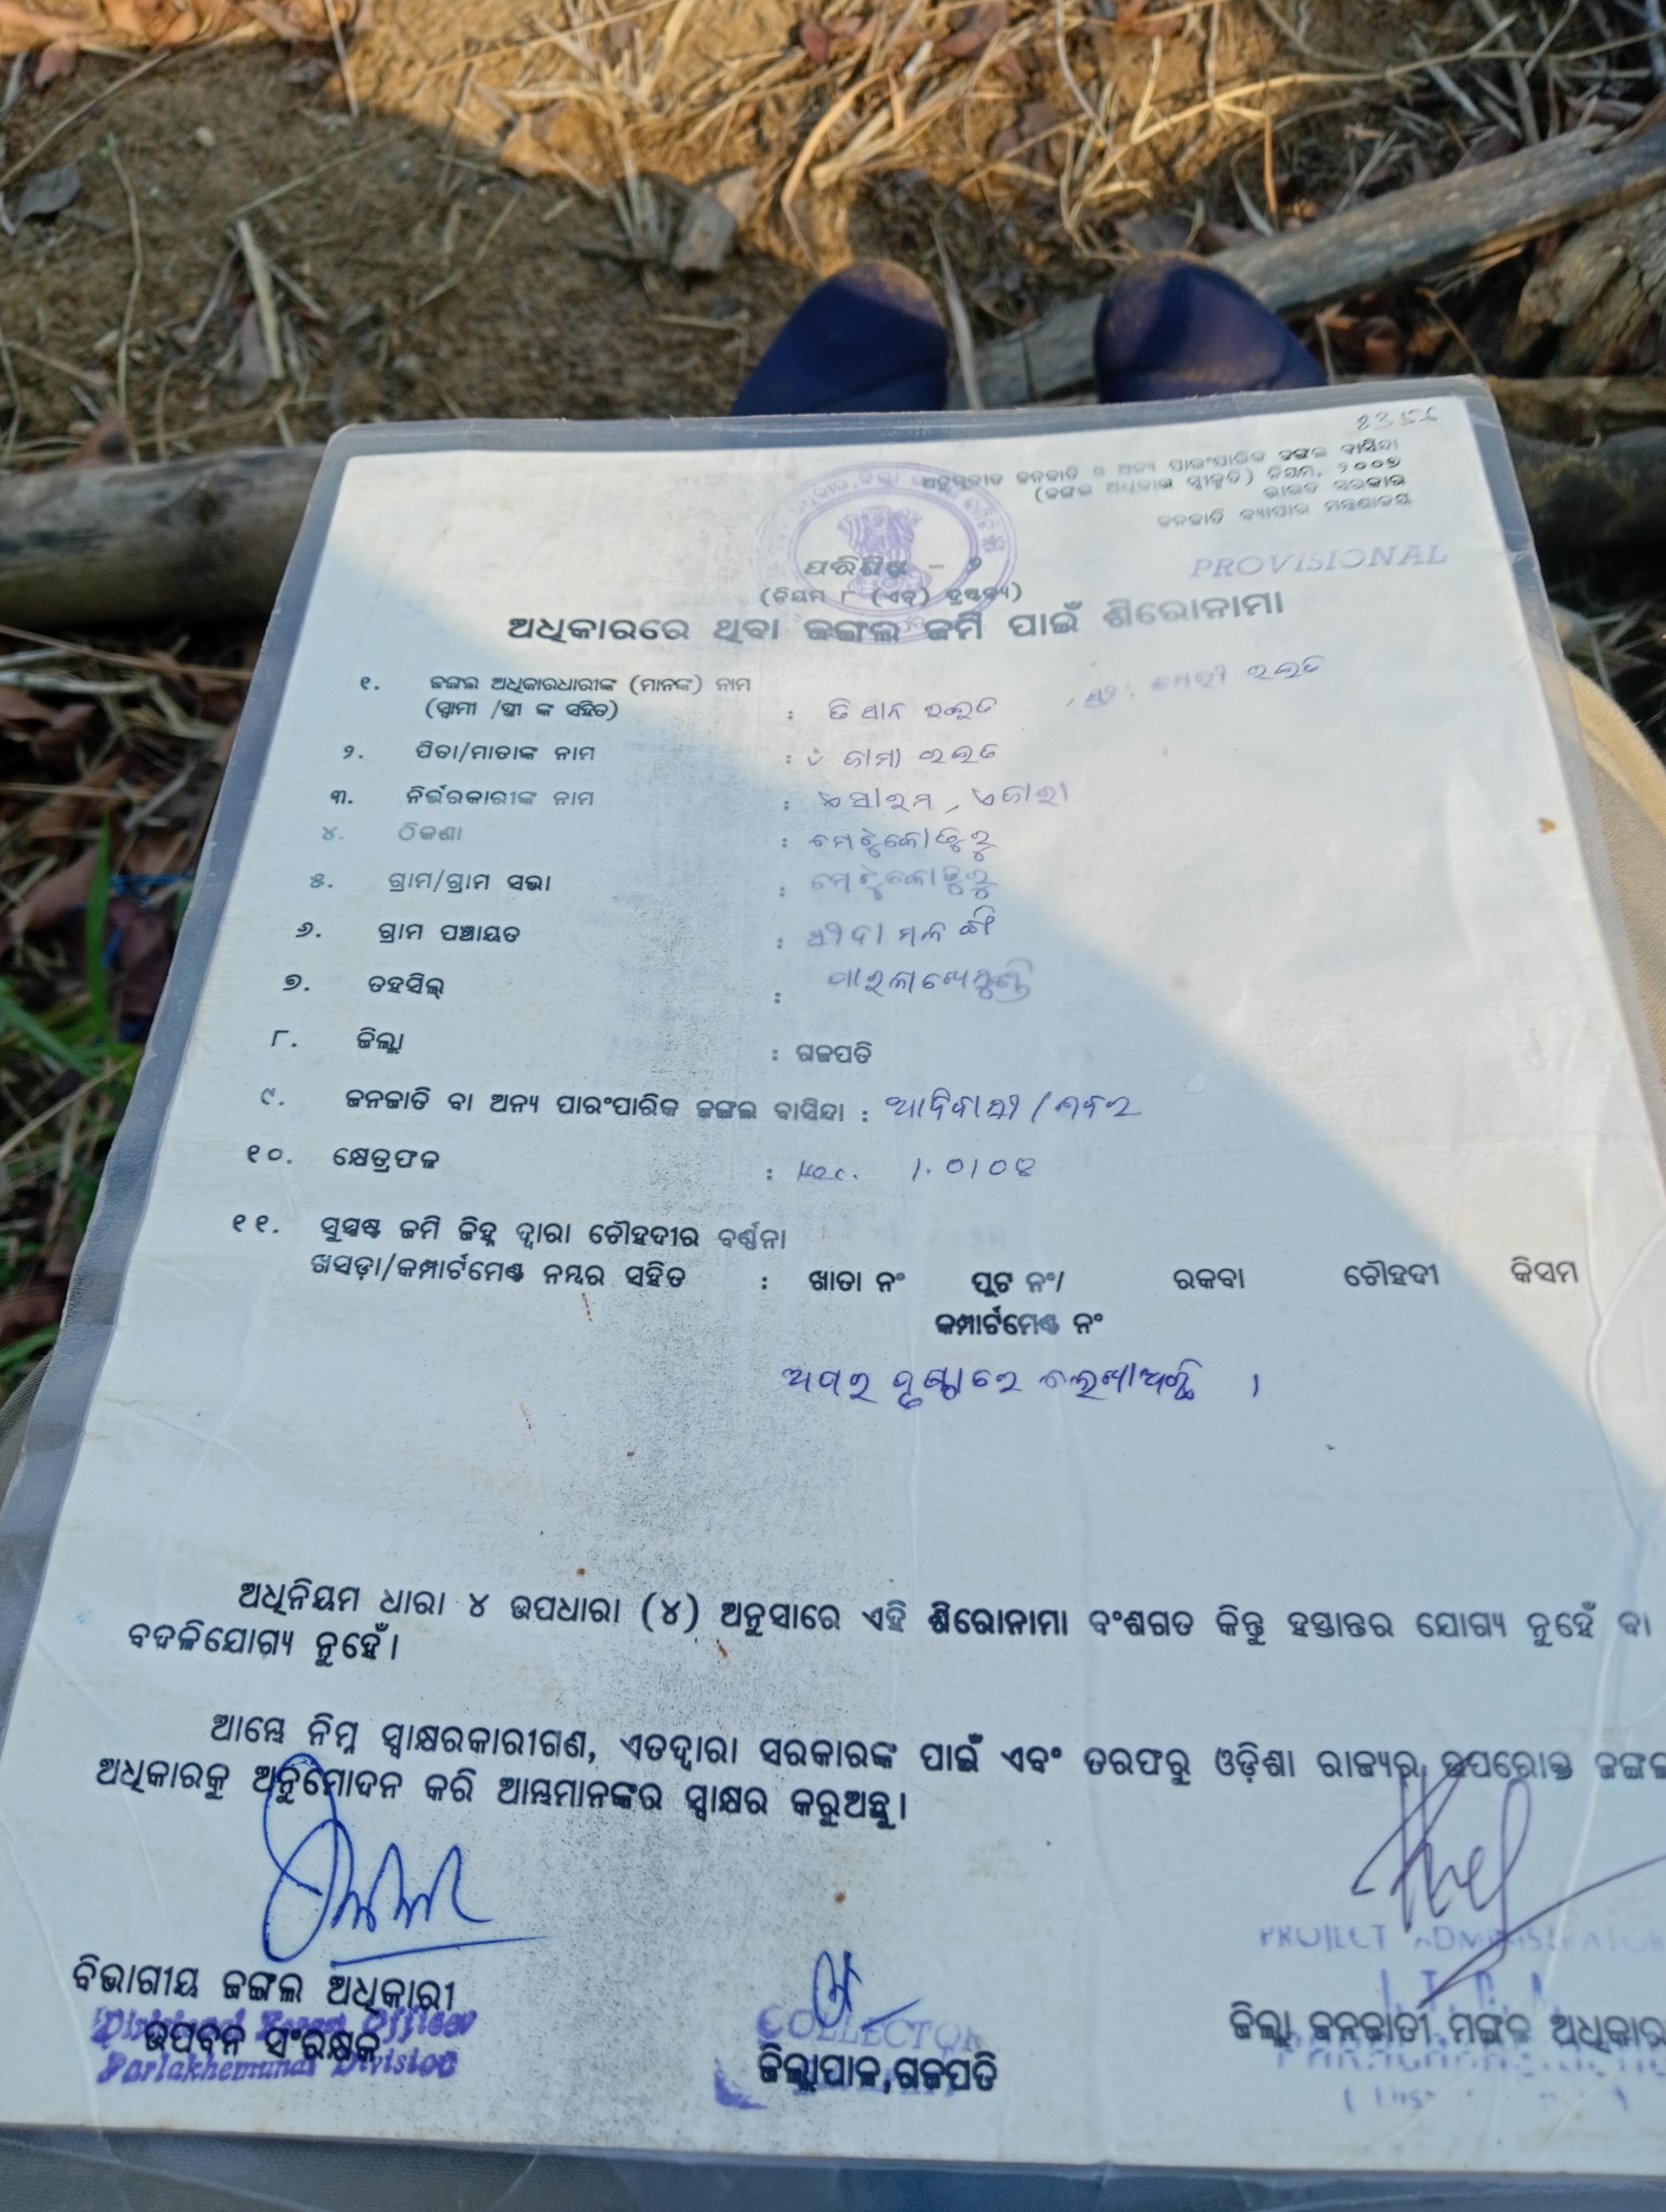 ଅନୁସୂଚୀତ ଜନଜାତି ଓ ଅନ୍ୟ ପାରଂପାରିକ ଜଙ୍ଗଲ ବାସିନ୍ଦା
(ଜଙ୍ଗଲ ଅଧିକାର ସ୍ୱୀକୃତି) ନିୟମ, ୨୦୦୭
ଭାରତ ସରକାର
ଜନଜାତି ବ୍ୟାପାର ମନ୍ତ୍ରଣାଳୟ
PROVISIONAL
ପରିଶିଷ୍ଟ - ୨
(ନିୟମ ୮ (ଏଚ୍) ଦ୍ରଷ୍ଟବ୍ୟ)
ଅଧିକାରରେ ଥିବା ଜଙ୍ଗଲ ଜମି ପାଇଁ ଶିରୋନାମା
୧. ଜଙ୍ଗଲ ଅଧିକାରଧାରୀଙ୍କ (ମାନଙ୍କ) ନାମ
(ସ୍ୱାମୀ /ସ୍ତ୍ରୀ ଙ୍କ ସହିତ) :
୨. ପିତା/ମାତାଙ୍କ ନାମ :
୩. ନିର୍ଭରକାରୀଙ୍କ ନାମ :
୪. ଠିକଣା :
୫. ଗ୍ରାମ/ଗ୍ରାମ ସଭା :
୬. ଗ୍ରାମ ପଞ୍ଚାୟତ :
୭. ତହସିଲ୍ : ପାରଳାଖେମୁଣ୍ଡି
୮. ଜିଲ୍ଲା : ଗଜପତି
୯. ଜନଜାତି ବା ଅନ୍ୟ ପାରଂପାରିକ ଜଙ୍ଗଲ ବାସିନ୍ଦା : ଆଦିବାସୀ / ଶବର
୧୦. କ୍ଷେତ୍ରଫଳ :
୧୧. ସୁସ୍ପଷ୍ଟ ଜମି ଚିହ୍ନ ଦ୍ୱାରା ଚୌହଦୀର ବର୍ଣ୍ଣନା
ଖସଡ଼ା/କମ୍ପାର୍ଟମେଣ୍ଟ ନମ୍ଭର ସହିତ : ଖାତା ନଂ ପ୍ଲଟ ନଂ/ ରକବା ଚୌହଦୀ କିସମ
କମ୍ପାର୍ଟମେଣ୍ଟ ନଂ
ଅପର ପୃଷ୍ଠାରେ ଲେଖାଅଛି ।
ଅଧିନିୟମ ଧାରା ୪ ଉପଧାରା (୪) ଅନୁସାରେ ଏହି ଶିରୋନାମା ବଂଶଗତ କିନ୍ତୁ ହସ୍ତାନ୍ତର ଯୋଗ୍ୟ ନୁହେଁ ବା
ବଦଳିଯୋଗ୍ୟ ନୁହେଁ।
ଆମ୍ଭେ ନିମ୍ନ ସ୍ୱାକ୍ଷରକାରୀଗଣ, ଏତଦ୍ୱାରା ସରକାରଙ୍କ ପାଇଁ ଏବଂ ତରଫରୁ ଓଡ଼ିଶା ରାଜ୍ୟର ଉପରୋକ୍ତ ଜଙ୍ଗଲ
ଅଧିକାରକୁ ଅନୁମୋଦନ କରି ଆମ୍ଭମାନଙ୍କର ସ୍ୱାକ୍ଷର କରୁଅଛୁ।
PROJECT ADMINISTRATOR
I.T.D.A.
ବିଭାଗୀୟ ଜଙ୍ଗଲ ଅଧିକାରୀ
Divisional Forest Officer
ଉପବନ ସଂରକ୍ଷକ
Parlakhemundi Division
COLLECTOR
ଜିଲ୍ଲାପାଳ,ଗଜପତି
ଜିଲ୍ଲା ଜନଜାତୀ ମଙ୍ଗଳ ଅଧିକାର